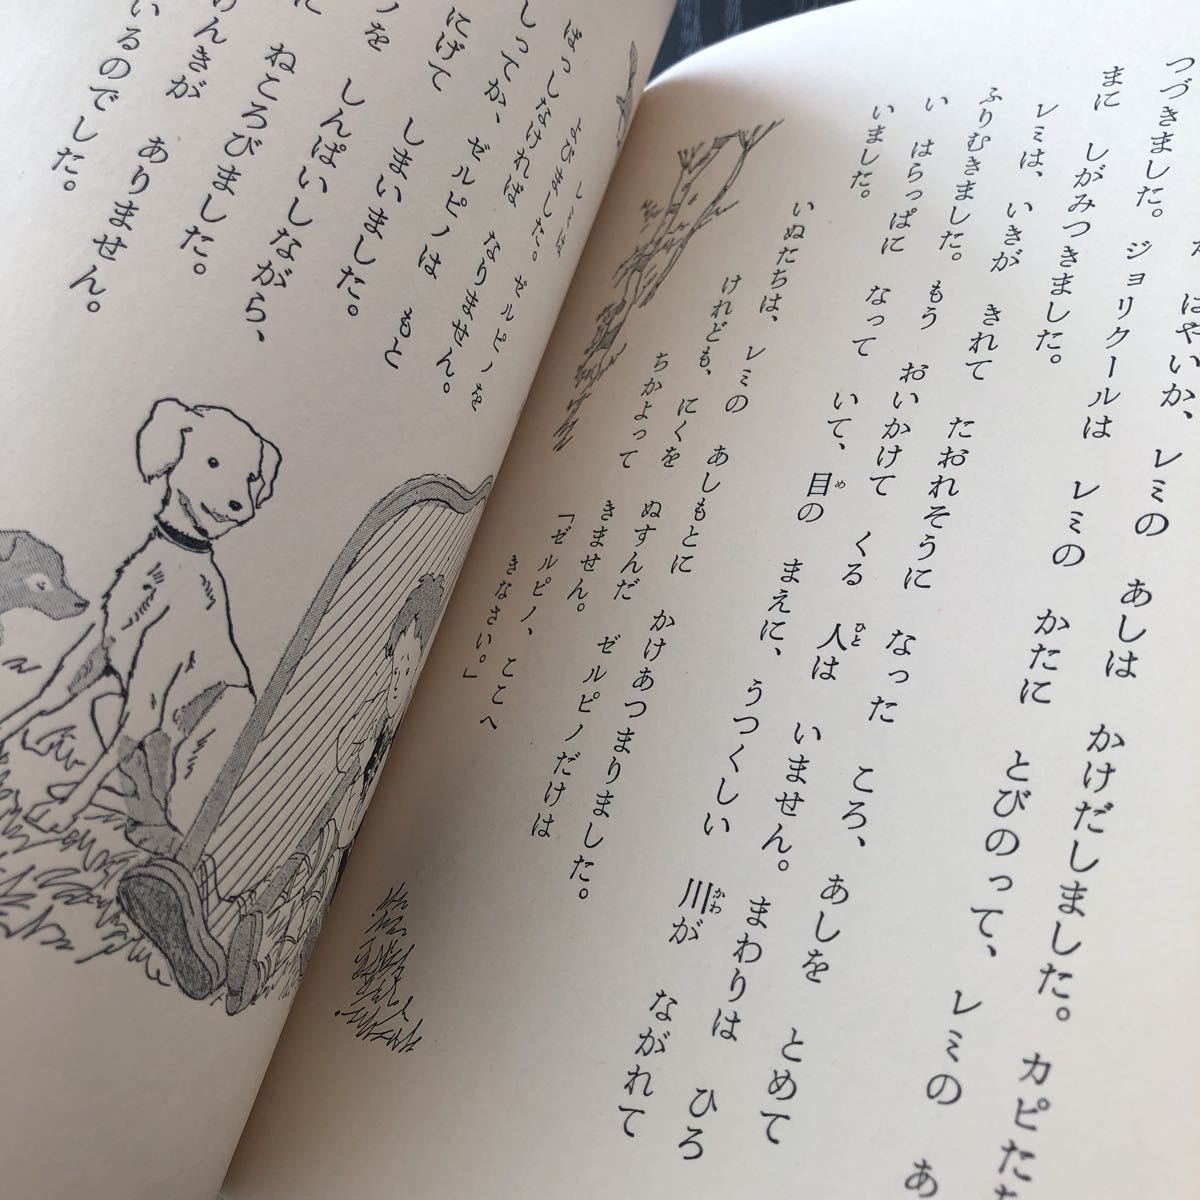 はやいか、レミの あしは かけだしました。カピた
つづきました。ジョリクールは レミの かたに とびのって、レミの あ
まに しがみつきました。
レミは、いきが きれて たおれそうに なった ころ、あしを とめて
ふりむきました。もう おいかけて くる 人は いません。まわりは ひろ
い はらっぱに なって いて、目の まえに、うつくしい 川が ながれて
いました。
いぬたちは、レミの あしもとに かけあつまりました。
けれども、にくを ぬすんだ ゼルピノだけは
ちかよって きません。
「ゼルピノ、ここへ
きなさい。」
レミは
よびました。ゼルピノを
ばっしなければ なりません。
しってか、ゼルピノは もと
にげて しまいました。
ノを しんぱいしながら、
に ねころびました。
げんきが ありません。
いるのでした。